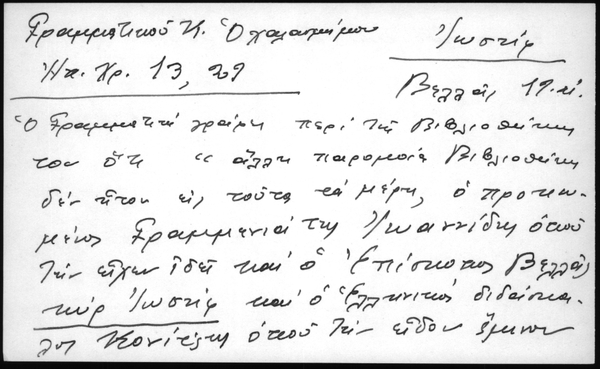 Γραμματικοῦ Κ. Ὁ χαλασμένου
Ἰωσήφ
Ἠπ. Χρ. 13, 29
Βελλᾶς 19. αἰ.
Ὁ Γραμματικ γράφει περὶ τῆς Βιβλιοθήκης
του ὅτι " ἄλλη παρομοία Βιβλιοθήκη
δὲν ἦτον εἰς τοῦτα τὰ μέρη, ὁ προκομ-
μένος Γραμμενιάτης Ἰωαννίδης ὁποῦ
τὴν εἶχεν ἰδεῖ καὶ ὁ Ἐπίσκοπος Βελλᾶς
κὺρ Ἰωσήφ καὶ ὁ Ἑλληνικὸς διδάσκα-
λος Κονίτζης ὁποῦ τὴν εἶδον ἔμεινον